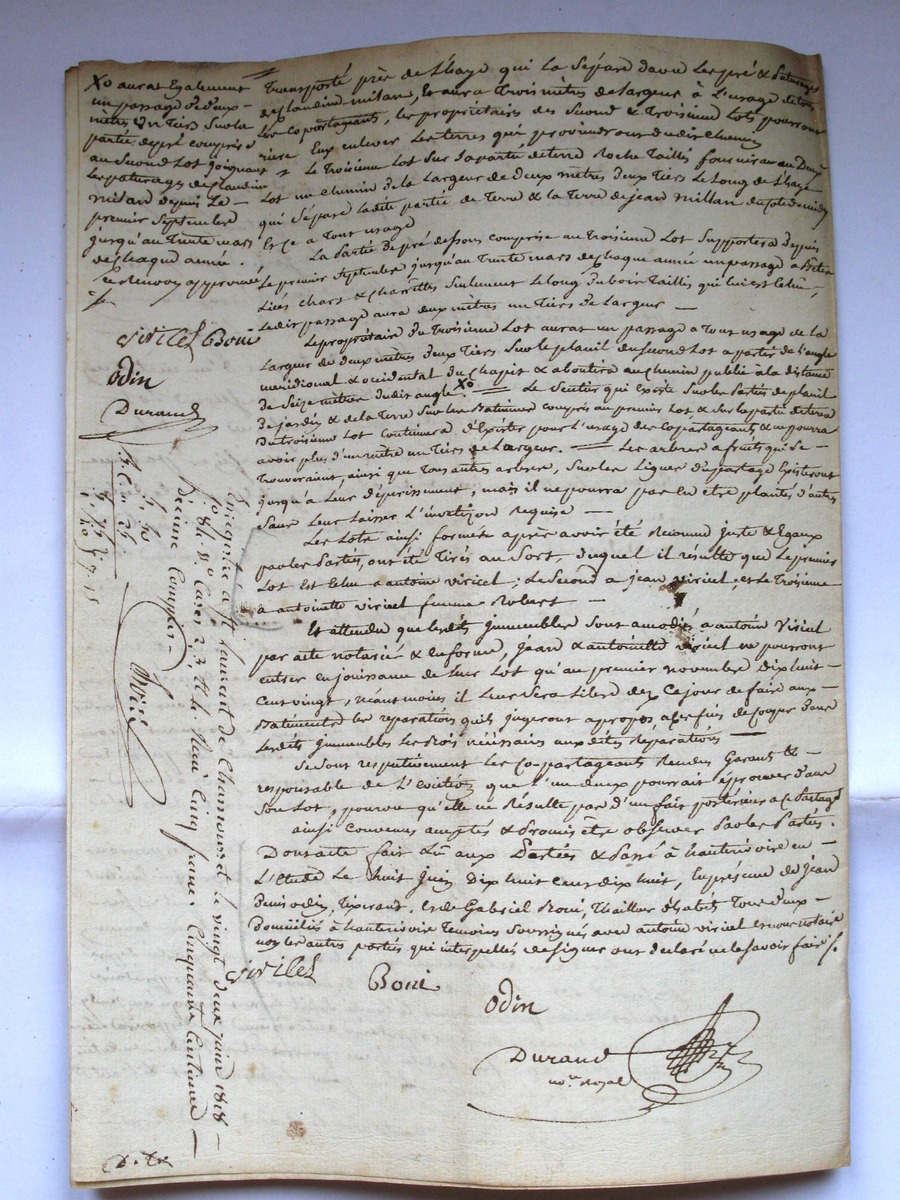 Transporté près de l'haye qui la sépard davec les pré &
de Claudine milan, & aura trois mètres de largeur à l'usage de tous
les copartageants, les propriétaires des second & troisieme Lots pourront
Eux enlever les terres qui proviendront dudit chemin
Le troisieme Lot sur sa partie de terre Roche Taillis fournira au Deux
Lot un chemin de la largeur de deux mètres deux tiers le long de l'haye
qui sépare ladite partie de terre & la terre de jean millan du Coté de midy
& ce a tout usage
La partie de pré dessous comprise au troisieme Lot supportera depuis
le premier septembre jusqu'au trente mars de chaque année un passage a
liées chars & charettes seulement le long du bois taillis qui lui est
Ledit passage aura deux mètres un tiers de largeur —
Le propriétaire du troisieme lot aurat un passage a tout usage de la
largeur de deux mètres deux tiers sur le plauil du second Lot a partir de l'angle
méridional & occidental du chapit & aboutira au chemin public à la distance
de seize mètres dudit angle Xo. = Le sentier qui existe sur les parties de plauil
de jardin & de la terre sur les Batiments compris au premier lot, & sur la partie de terre
Du troisieme lot continuera d'exister pour l'usage des copartageants & ne pourra
avoir plus d'un mètre un tiers de Largeur. = Les arbres a fruits qui se
trouveraient, ainsi que tous autres arbres, sur les lignes du partage Existeront
jusqu'a leur dépérissement, mais il ne pourra pas en etre plantés d'autres
sans leur laisser l'invetizon Requise —
Les Lots ainsi formés après avoir été Reconnu juste & Egaux
par les parties, ont été tirés au sort, duquel il résulte que le premier
Lot est Echu a antoine viricel; Le second a jean viricel, & Le troisieme
à antoinette viricel femme Robert —
Et attendu que lesdits immeubles sont amodiés a antoine viricel
par acte notarié & en forme, jean & antoinette viricel ne pourront
entrer en jouissance de leur Lot qu'au premier novembre dix huit
cent vingt, néant moins il leur sera libre dez ce jour de faire aux
Batiments les réparations qu'ils jugeront apropos, a
lesdits immeubles les Bois nécessaires auxdites réparations —
Se sont respectivement les co-partageants Rendus Garants &
responsable de L'eviction que l'un deux pourrait éprouver dans
son Lot, pourvu qu'elle ne Résulte pas d'un fait postérieur a ce partage
ainsi convenus acceptés & Promis être observer par les Parties.
Dont acte fait Lû aux Parties & Passé à hauterivoire en
L'Etude le huit juin Dix huit cent dix huit, En présence de jean
Denis odin, tixerand, & de Gabriel Boni, thailleur d'habits tous deux
Domiciliés à hauterivoire témoins soussignés avec antoine viricel & nous notaire
non les autres parties qui interpellés de signer ont déclaré ne le savoir faire /.
viricel
Boni
odin
Durand
no.re Royal
Xo aurat Egalement
un passage de deux
mètres un tiers sur la
partie de pré comprise
au second Lot joignant
les paturages de Claudine
milan depuis Le
premier septembre
jusqu'au trente mars
de chaque année.
Le renvoy approuvé
viricel Boni
odin
Durand
Enregistré a St Laurent de Chamousset le vingt deux juin 1818
fo. 84. Vo. Cases 2, 3 et 4. Reçu Cinq francs Cinquante Centimes
Décime Compris